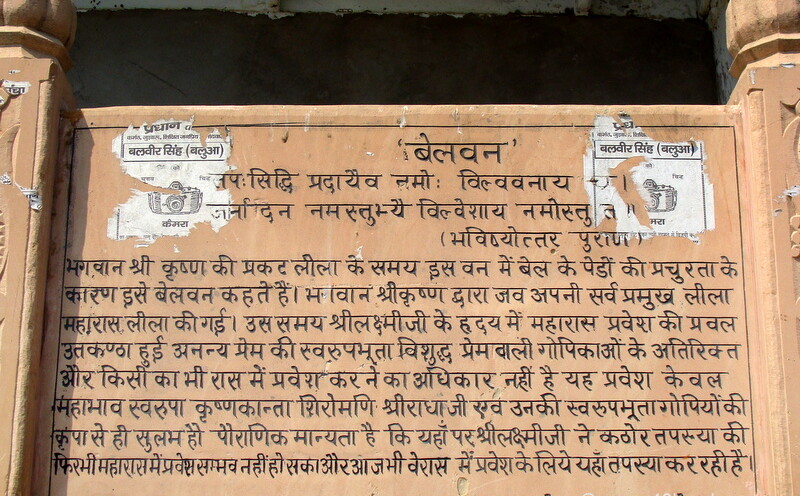 प्रधान
बलवीर सिंह (बलुआ)
कैमरा
प्रधान
बलवीर सिंह (बलुआ)
कैमरा
'बेलवन'
सिद्धि प्रदायैव नमोः विल्ववनाय च।
नमस्तुभ्यै विल्वेशाय नमोस्तुते॥
(भविष्योत्तर पुराण)
भगवान श्री कृष्ण की प्रकट लीला के समय इस वन में बेल के पेडों की प्रचुरता के
कारण इसे बेलवन कहते हैं। भगवान श्रीकृष्ण द्वारा जव अपनी सर्व प्रमुख लीला
महारास लीला की गई। उस समय श्रीलक्ष्मीजी के हृदय में महारास प्रवेश की प्रवल
उतकण्ठा हुई अनन्य प्रेम की स्वरुपभूता विशुद्ध प्रेमवाली गोपिकाओं के अतिरिक्त
और किसी का भी रास में प्रवेश कर ने का अधिकार नहीं है यह प्रवेश के वल
महाभाव स्वरुपा कृष्णकान्ता शिरोमणि श्रीराधाजी एवं उनकी स्वरुपभूता गोपियों की
कृपा से ही सुलभ है। पौराणिक मान्यता है कि यहाँ पर श्रीलक्ष्मीजी ने कठोर तपस्या की
फिरभी महारास में प्रवेश सम्भव नहीं हो सका और आज भी वे रास में प्रवेश के लिये यहाँ तपस्या कर रही है।